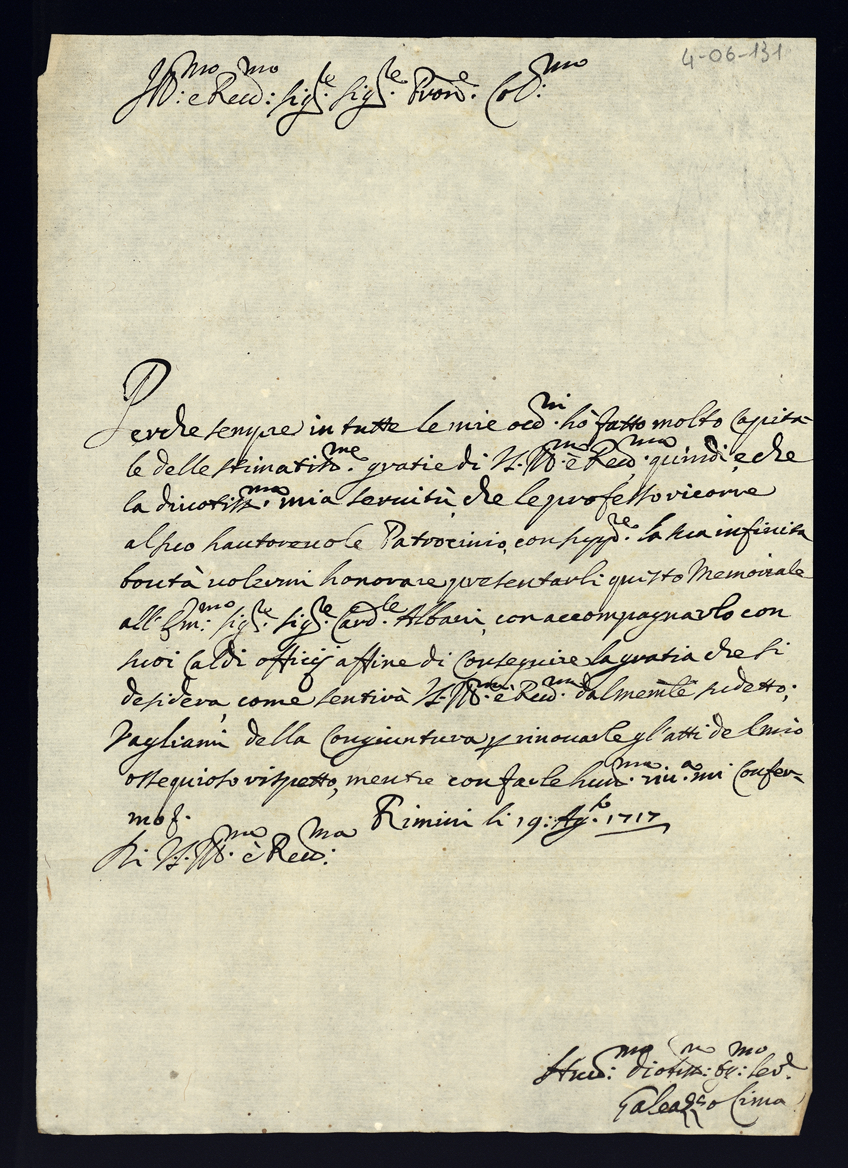 4-06-131
Ill:mo e Reu:mo Sig:re Sig:re Pron:e Col:mo
Perche sempre in tutte le mie occ:ni hò fatto molto capita=
le delle stimatiss:me gratie di V.S. Ill:ma è Reu:ma quindi è che
la diuotiss:ma mia seruitù, che le professo ricorre
al suo hautoreuole Patrocinio, con la sua infinita
bontà uolermi honorare presentarli questo Memoriale
all'Em:mo Sig:re Sig:re Card:le Albani, con accompagnarlo con
suoi caldi officij affine di conseguire la gratia che si
desidera, come sentirà V.S. Ill:ma è Reu:ma dal mem:le sudetto;
Vagliami della congiuntura p rinouarle gl'atti del mio
ossequioso rispetto, mentre con farle hum:ma riu:a mi confer=
mo
Rimini li 19: Ag:to 1717
Di V.S. Ill:ma è Reu:ma
Hum:mo diuotiss:mo ob:mo Ser:
Galeazzo Cima